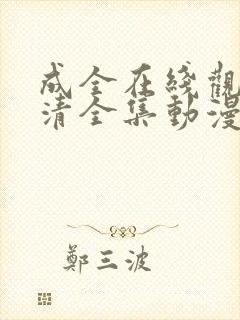 成全在綫觀
清全集動漫
鄭三波